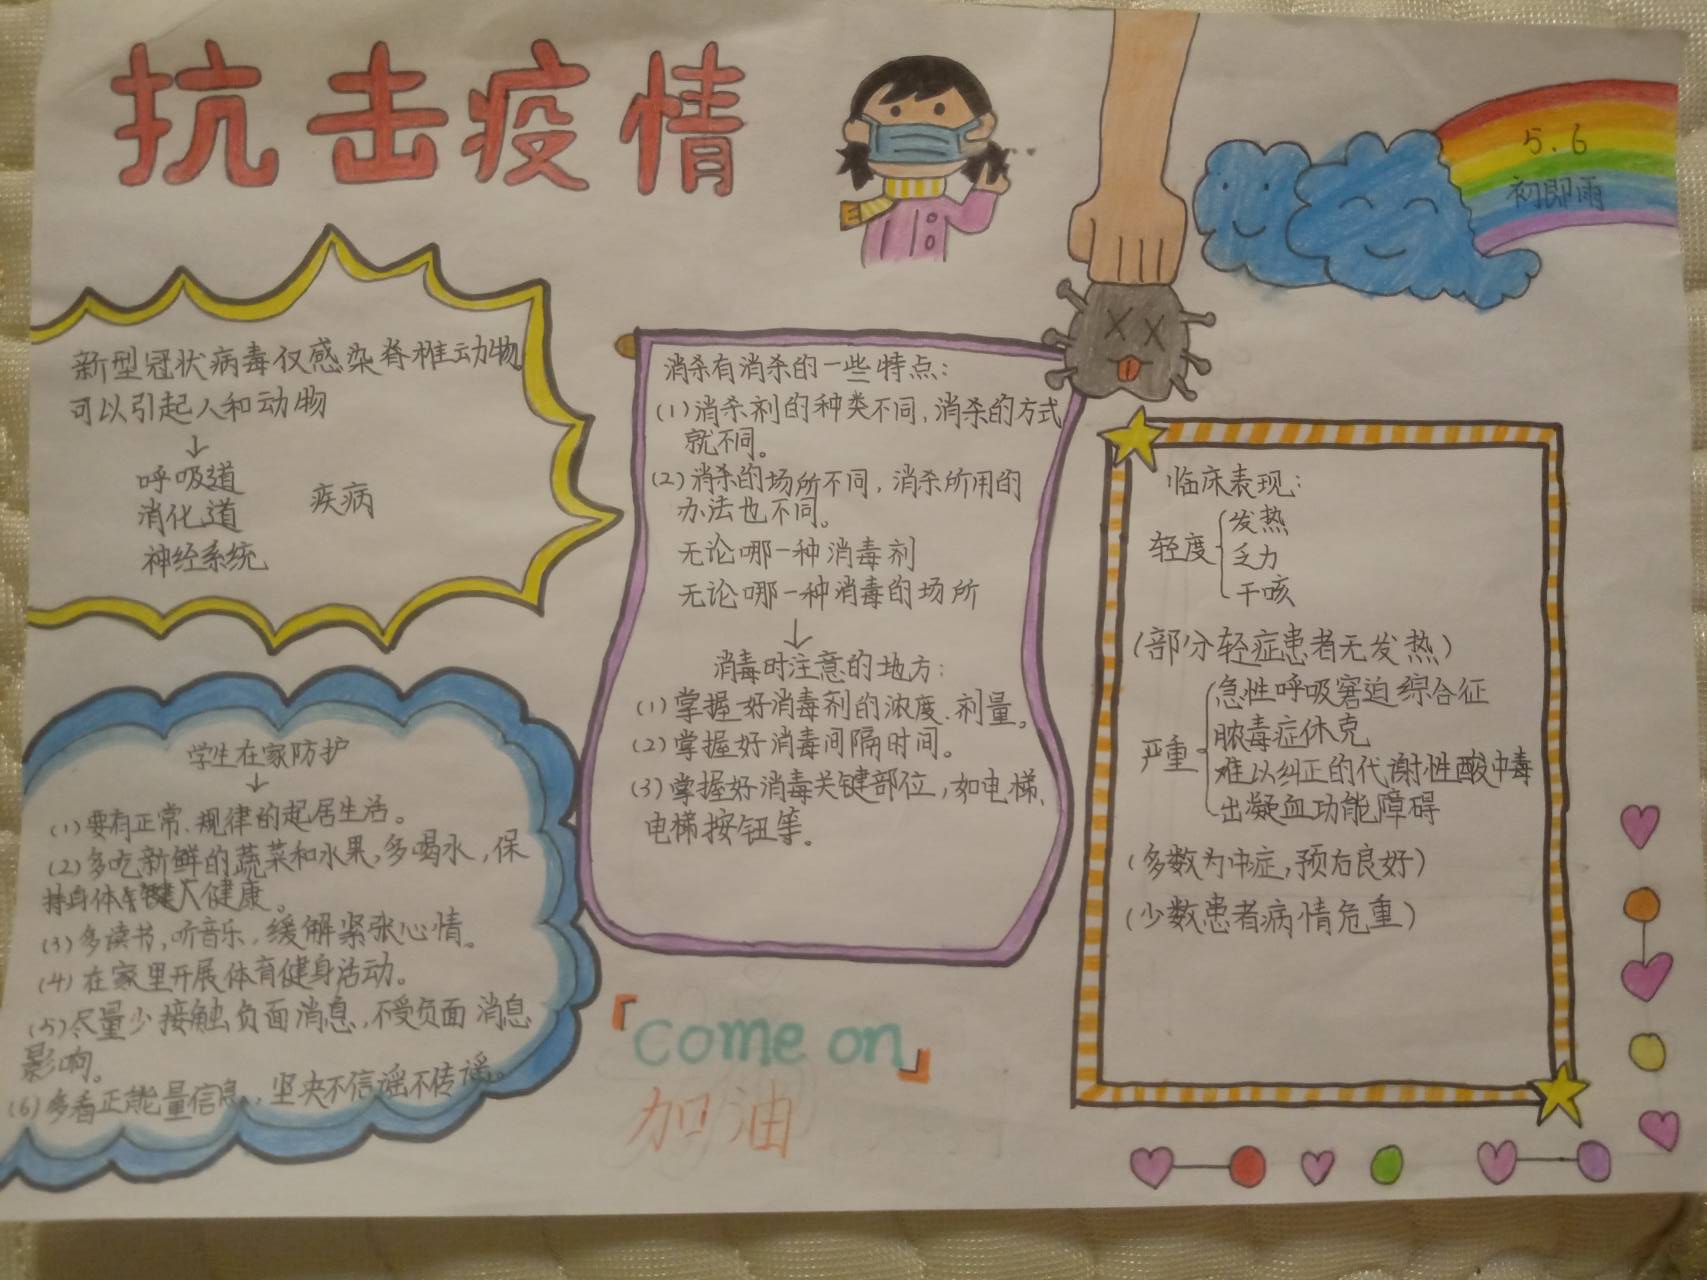 抗击疫情
5.6
初即雨
新型冠状病毒仅感染脊椎动物
可以引起人和动物
↓
呼吸道
消化道
疾病
神经系统
学生在家防护
↓
(1)要有正常、规律的起居生活。
(2)多吃新鲜的蔬菜和水果,多喝水,保
持身体健康。
(3)多读书,听音乐,缓解紧张心情。
(4)在家里开展体育健身活动。
(5)尽量少接触负面消息,不受负面消息
影响。
(6)多看正能量信息,坚决不信谣不传谣。
消杀有消杀的一些特点:
(1)消杀剂的种类不同,消杀的方式
就不同。
(2)消杀的场所不同,消杀所用的
办法也不同。
无论哪一种消毒剂
无论哪一种消毒的场所
↓
消毒时注意的地方:
(1)掌握好消毒剂的浓度、剂量。
(2)掌握好消毒间隔时间。
(3)掌握好消毒关键部位,如电梯、
电梯按钮等。
「come on」
加油
临床表现:
轻度
发热
乏力
干咳
(部分轻症患者无发热)
严重
急性呼吸窘迫综合征
脓毒症休克
难以纠正的代谢性酸中毒
出凝血功能障碍
(多数为中症,预后良好)
(少数患者病情危重)